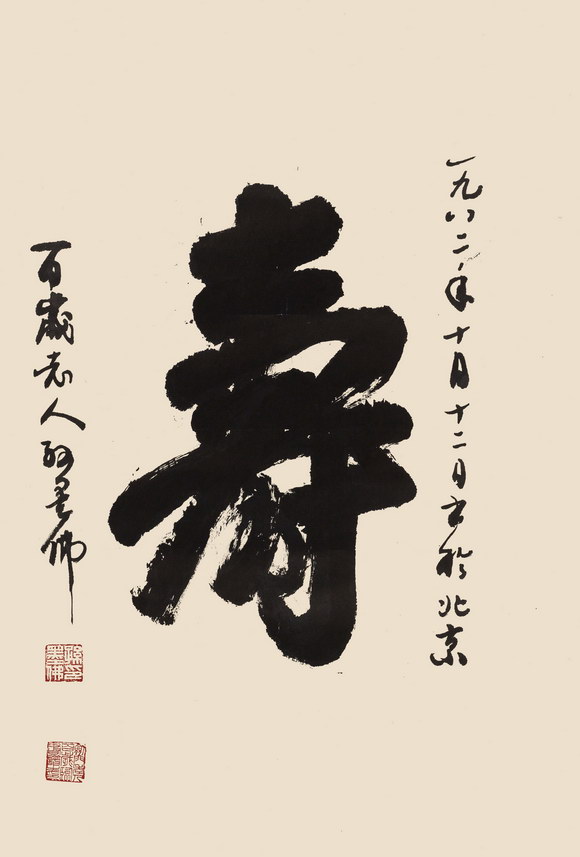 一九八二年十月十二日书于北京
寿
百岁老人孙墨佛
孙印墨佛